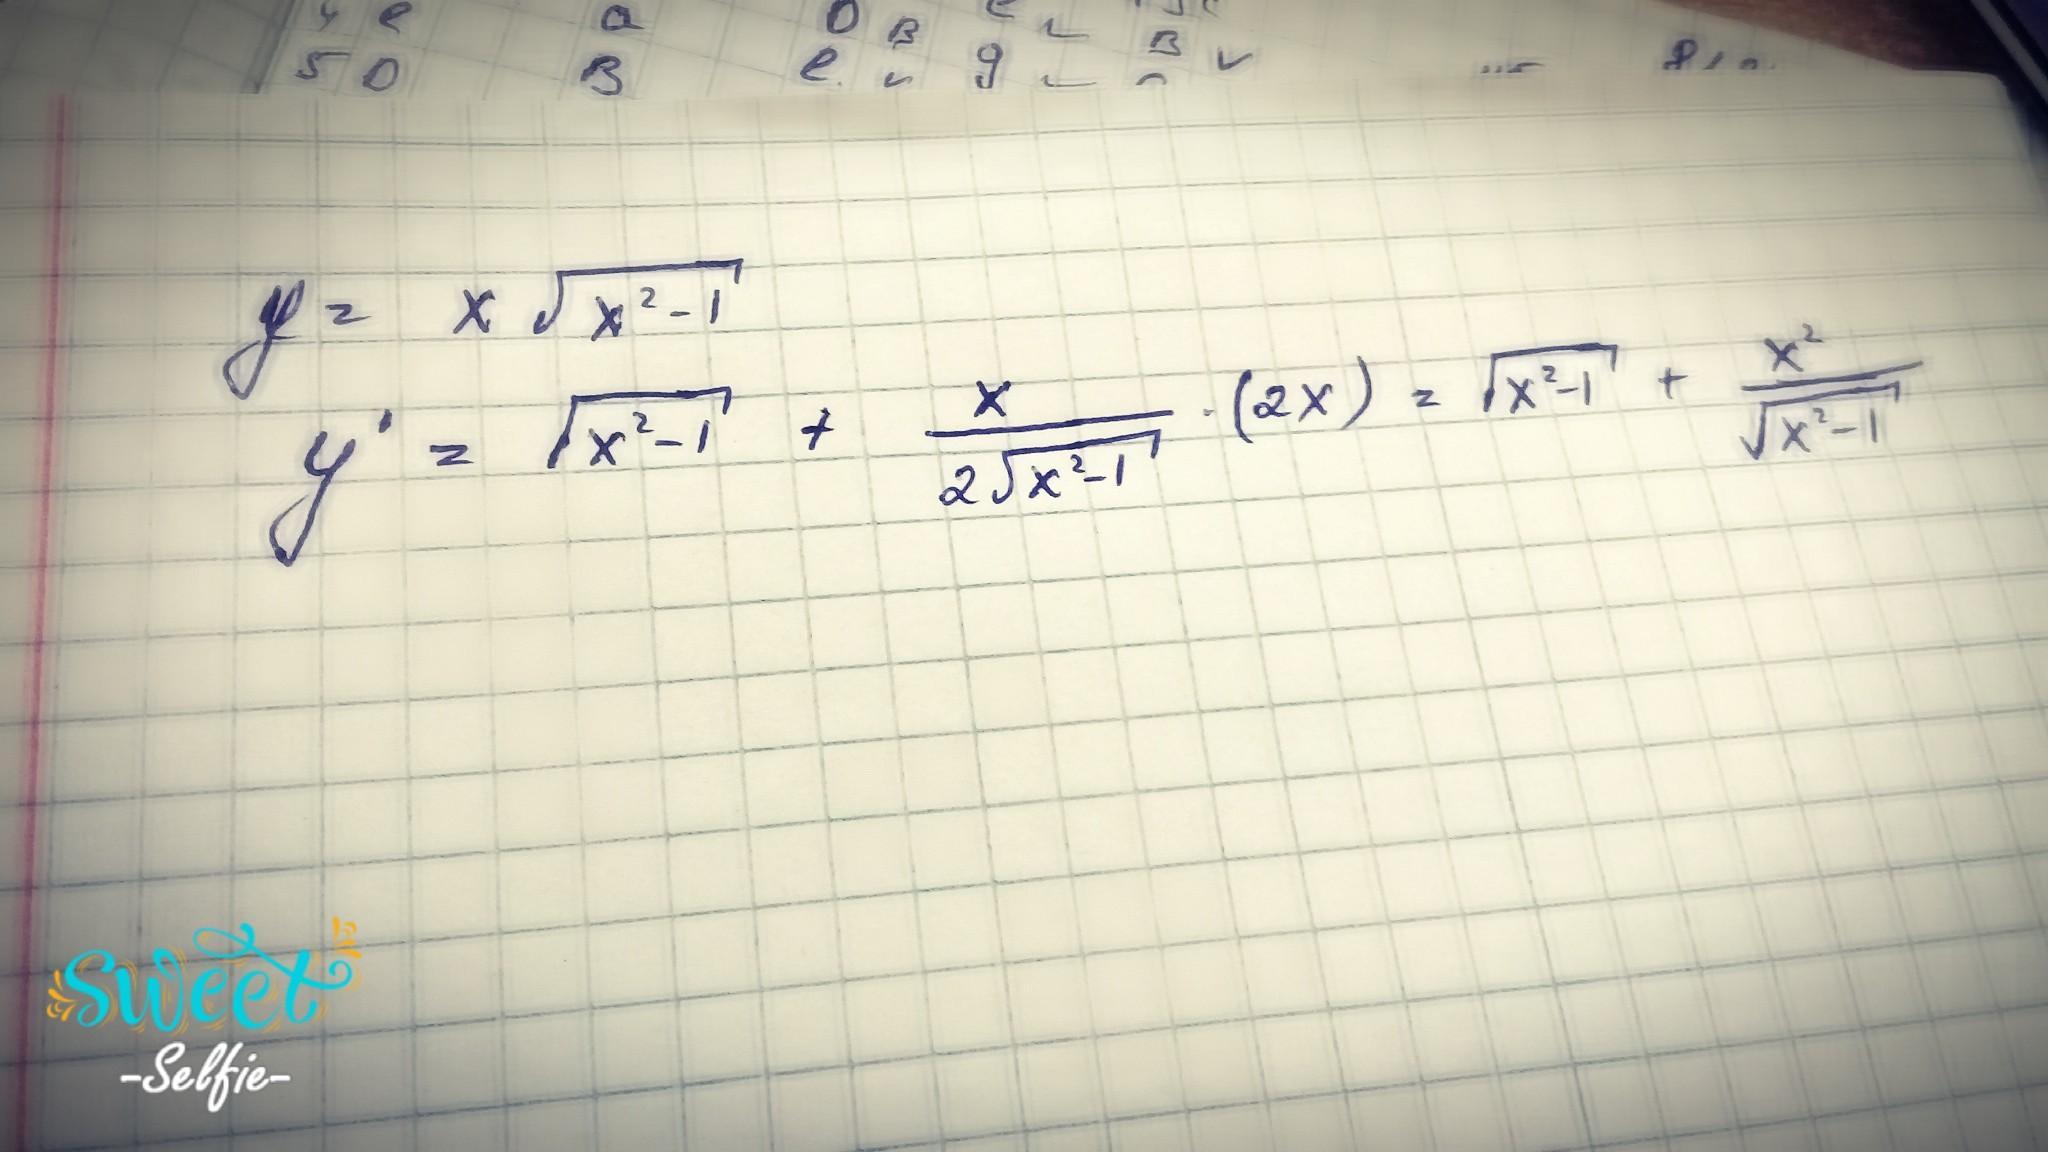 5 D B e. v g
y = x √(x²-1)
y' = √(x²-1) + x/(2√(x²-1)) · (2x) = √(x²-1) + x²/√(x²-1)
sweet
-Selfie-